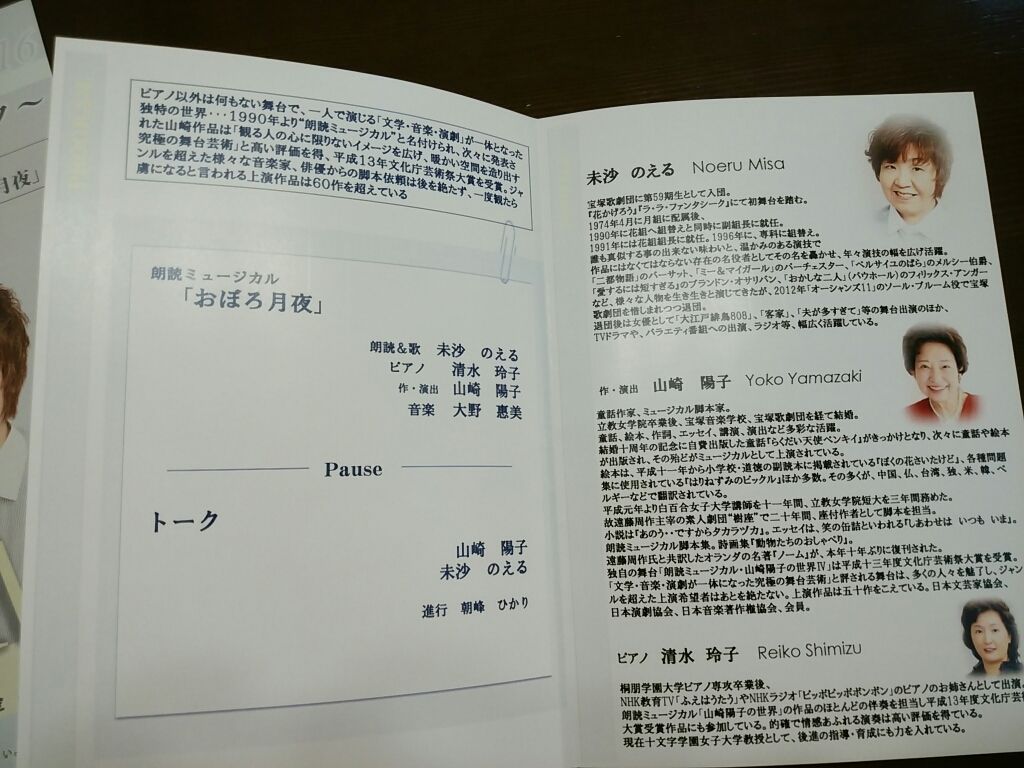 16
ピアノ以外は何もない舞台で、一人で演じる「文学・音楽・演劇」が一体となった
独特の世界・・・1990年より“朗読ミュージカル”と名付けられ、次々に発表さ
れた山崎作品は「観る人の心に限りないイメージを広げ、暖かい空間を造り出す
究極の舞台芸術」と高い評価を得、平成13年文化庁芸術祭大賞を受賞。ジャ
ンルを超えた様々な音楽家、俳優からの脚本依頼は後を絶たず、一度観たら
虜になると言われる上演作品は60作を超えている
朗読ミュージカル
「おぼろ月夜」
朗読＆歌 未沙 のえる
ピアノ 清水 玲子
作・演出 山崎 陽子
音楽 大野 惠美
Pause
トーク
山崎 陽子
未沙 のえる
進行 朝峰 ひかり
未沙 のえる Noeru Misa
宝塚歌劇団に第59期生として入団。
『花かげろう』『ラ・ラ・ファンタシーク』にて初舞台を踏む。
1974年4月に月組に配属後、
1990年に花組へ組替えと同時に副組長に就任。
1991年には花組組長に就任。1996年に、専科に組替え。
誰も真似する事の出来ない味わいと、温かみのある演技で
作品にはなくてはならない存在の名役者としてその名を轟かせ、年々演技の幅を広げ活躍。
「二都物語」のバーサット、「ミー＆マイガール」のパーチェスター、「ベルサイユのばら」のメルシー伯爵、
「愛するには短すぎる」のブランドン・オサリバン、「おかしな二人」（バウホール）のフィリックス・アンガー
など、様々な人物を生き生きと演じてきたが、2012年「オーシャンズ11」のソール・ブルーム役で宝塚
歌劇団を惜しまれつつ退団。
退団後は女優として「大江戸緋鳥808」、「客家」、「夫が多すぎて」等の舞台出演のほか、
TVドラマや、バラエティ番組への出演、ラジオ等、幅広く活躍している。
作・演出 山崎 陽子 Yoko Yamazaki
童話作家、ミュージカル脚本家。
立教女学院卒業後、宝塚音楽学校、宝塚歌劇団を経て結婚。
童話、絵本、作詞、エッセイ、講演、演出など多彩な活躍。
結婚十周年の記念に自費出版した童話「らくだい天使ペンキイ」がきっかけとなり、次々に童話や絵本
が出版され、その殆どがミュージカルとして上演されている。
絵本は、平成十一年から小学校・道徳の副読本に掲載されている『ぼくの花さいたけど』、各種問題
集に使用されている『はりねずみのピックル』ほか多数。その多くが、中国、仏、台湾、独、米、韓、ベ
ルギーなどで翻訳されている。
平成元年より白百合女子大学講師を十一年間、立教女学院短大を三年間務めた。
故遠藤周作主宰の素人劇団“樹座”で二十年間、座付作者として脚本を担当。
小説は『あのう・・ですからタカラヅカ』。エッセイは、笑の缶詰といわれる『しあわせは いつも いま』。
朗読ミュージカル脚本集。詩画集『動物たちのおしゃべり』。
遠藤周作氏と共訳したオランダの名著『ノーム』が、本年十年ぶりに復刊された。
独自の舞台「朗読ミュージカル・山崎陽子の世界Ⅳ」は平成十三年度文化庁芸術祭大賞を受賞。
「文学・音楽・演劇が一体になった究極の舞台芸術」と評される舞台は、多くの人々を魅了し、ジャン
ルを超えた上演希望者はあとを絶たない。上演作品は五十作をこえている。日本文芸家協会、
日本演劇協会、日本音楽著作権協会、会員。
ピアノ 清水 玲子 Reiko Shimizu
桐朋学園大学ピアノ専攻卒業後、
NHK教育TV「ふえはうたう」やNHKラジオ「ピッポピッポボンボン」のピアノのお姉さんとして出演。
朗読ミュージカル「山崎陽子の世界」の作品のほとんどの伴奏を担当し平成13年度文化庁芸術
大賞受賞作品にも参加している。的確で情感あふれる演奏は高い評価を得ている。
現在十文字学園女子大学教授として、後進の指導・育成にも力を入れている。